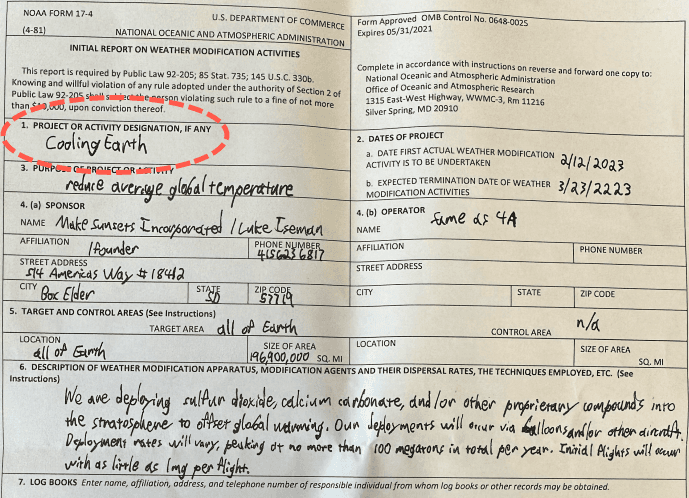 NOAA FORM 17-4
(4-81)
U.S. DEPARTMENT OF COMMERCE
NATIONAL OCEANIC AND ATMOSPHERIC ADMINISTRATION
INITIAL REPORT ON WEATHER MODIFICATION ACTIVITIES
This report is required by Public Law 92-205; 85 Stat. 735; 145 U.S.C. 330b.
Knowing and willful violation of any rule adopted under the authority of Section 2 of
Public Law 92-205 shall subject the person violating such rule to a fine of not more
than $10,000, upon conviction thereof.
Form Approved OMB Control No. 0648-0025
Expires 05/31/2021
Complete in accordance with instructions on reverse and forward one copy to:
National Oceanic and Atmospheric Administration
Office of Oceanic and Atmospheric Research
1315 East-West Highway, WWMC-3, Rm 11216
Silver Spring, MD 20910
1. PROJECT OR ACTIVITY DESIGNATION, IF ANY
Cooling Earth
2. DATES OF PROJECT
a. DATE FIRST ACTUAL WEATHER MODIFICATION
ACTIVITY IS TO BE UNDERTAKEN 2/12/2023
b. EXPECTED TERMINATION DATE OF WEATHER
MODIFICATION ACTIVITIES 3/23/2223
3. PURPOSE OF PROJECT OR ACTIVITY
reduce average global temperature
4. (a) SPONSOR
NAME Make Sunsets Incorporated / Luke Iseman
AFFILIATION
/founder
PHONE NUMBER
4156236817
STREET ADDRESS
514 Americas Way #18412
CITY
Box Elder
STATE
SD
ZIP CODE
57719
4. (b) OPERATOR
NAME
same as 4A
AFFILIATION
PHONE NUMBER
STREET ADDRESS
CITY
STATE
ZIP CODE
5. TARGET AND CONTROL AREAS (See Instructions)
TARGET AREA all of Earth
CONTROL AREA n/a
LOCATION
all of Earth
SIZE OF AREA
196,900,000 SQ. MI
LOCATION
SIZE OF AREA
SQ. MI
6. DESCRIPTION OF WEATHER MODIFICATION APPARATUS, MODIFICATION AGENTS AND THEIR DISPERSAL RATES, THE TECHNIQUES EMPLOYED, ETC. (See
Instructions)
We are deploying sulfur dioxide, calcium carbonate, and/or other proprietary compounds into
the stratosphere to offset global warming. Our deployments will occur via balloons and/or other aircraft.
Deployment rates will vary, peaking at no more than 100 megatons in total per year. Initial flights will occur
with as little as 1mg per flight.
7. LOG BOOKS Enter name, affiliation, address, and telephone number of responsible individual from whom log books or other records may be obtained.